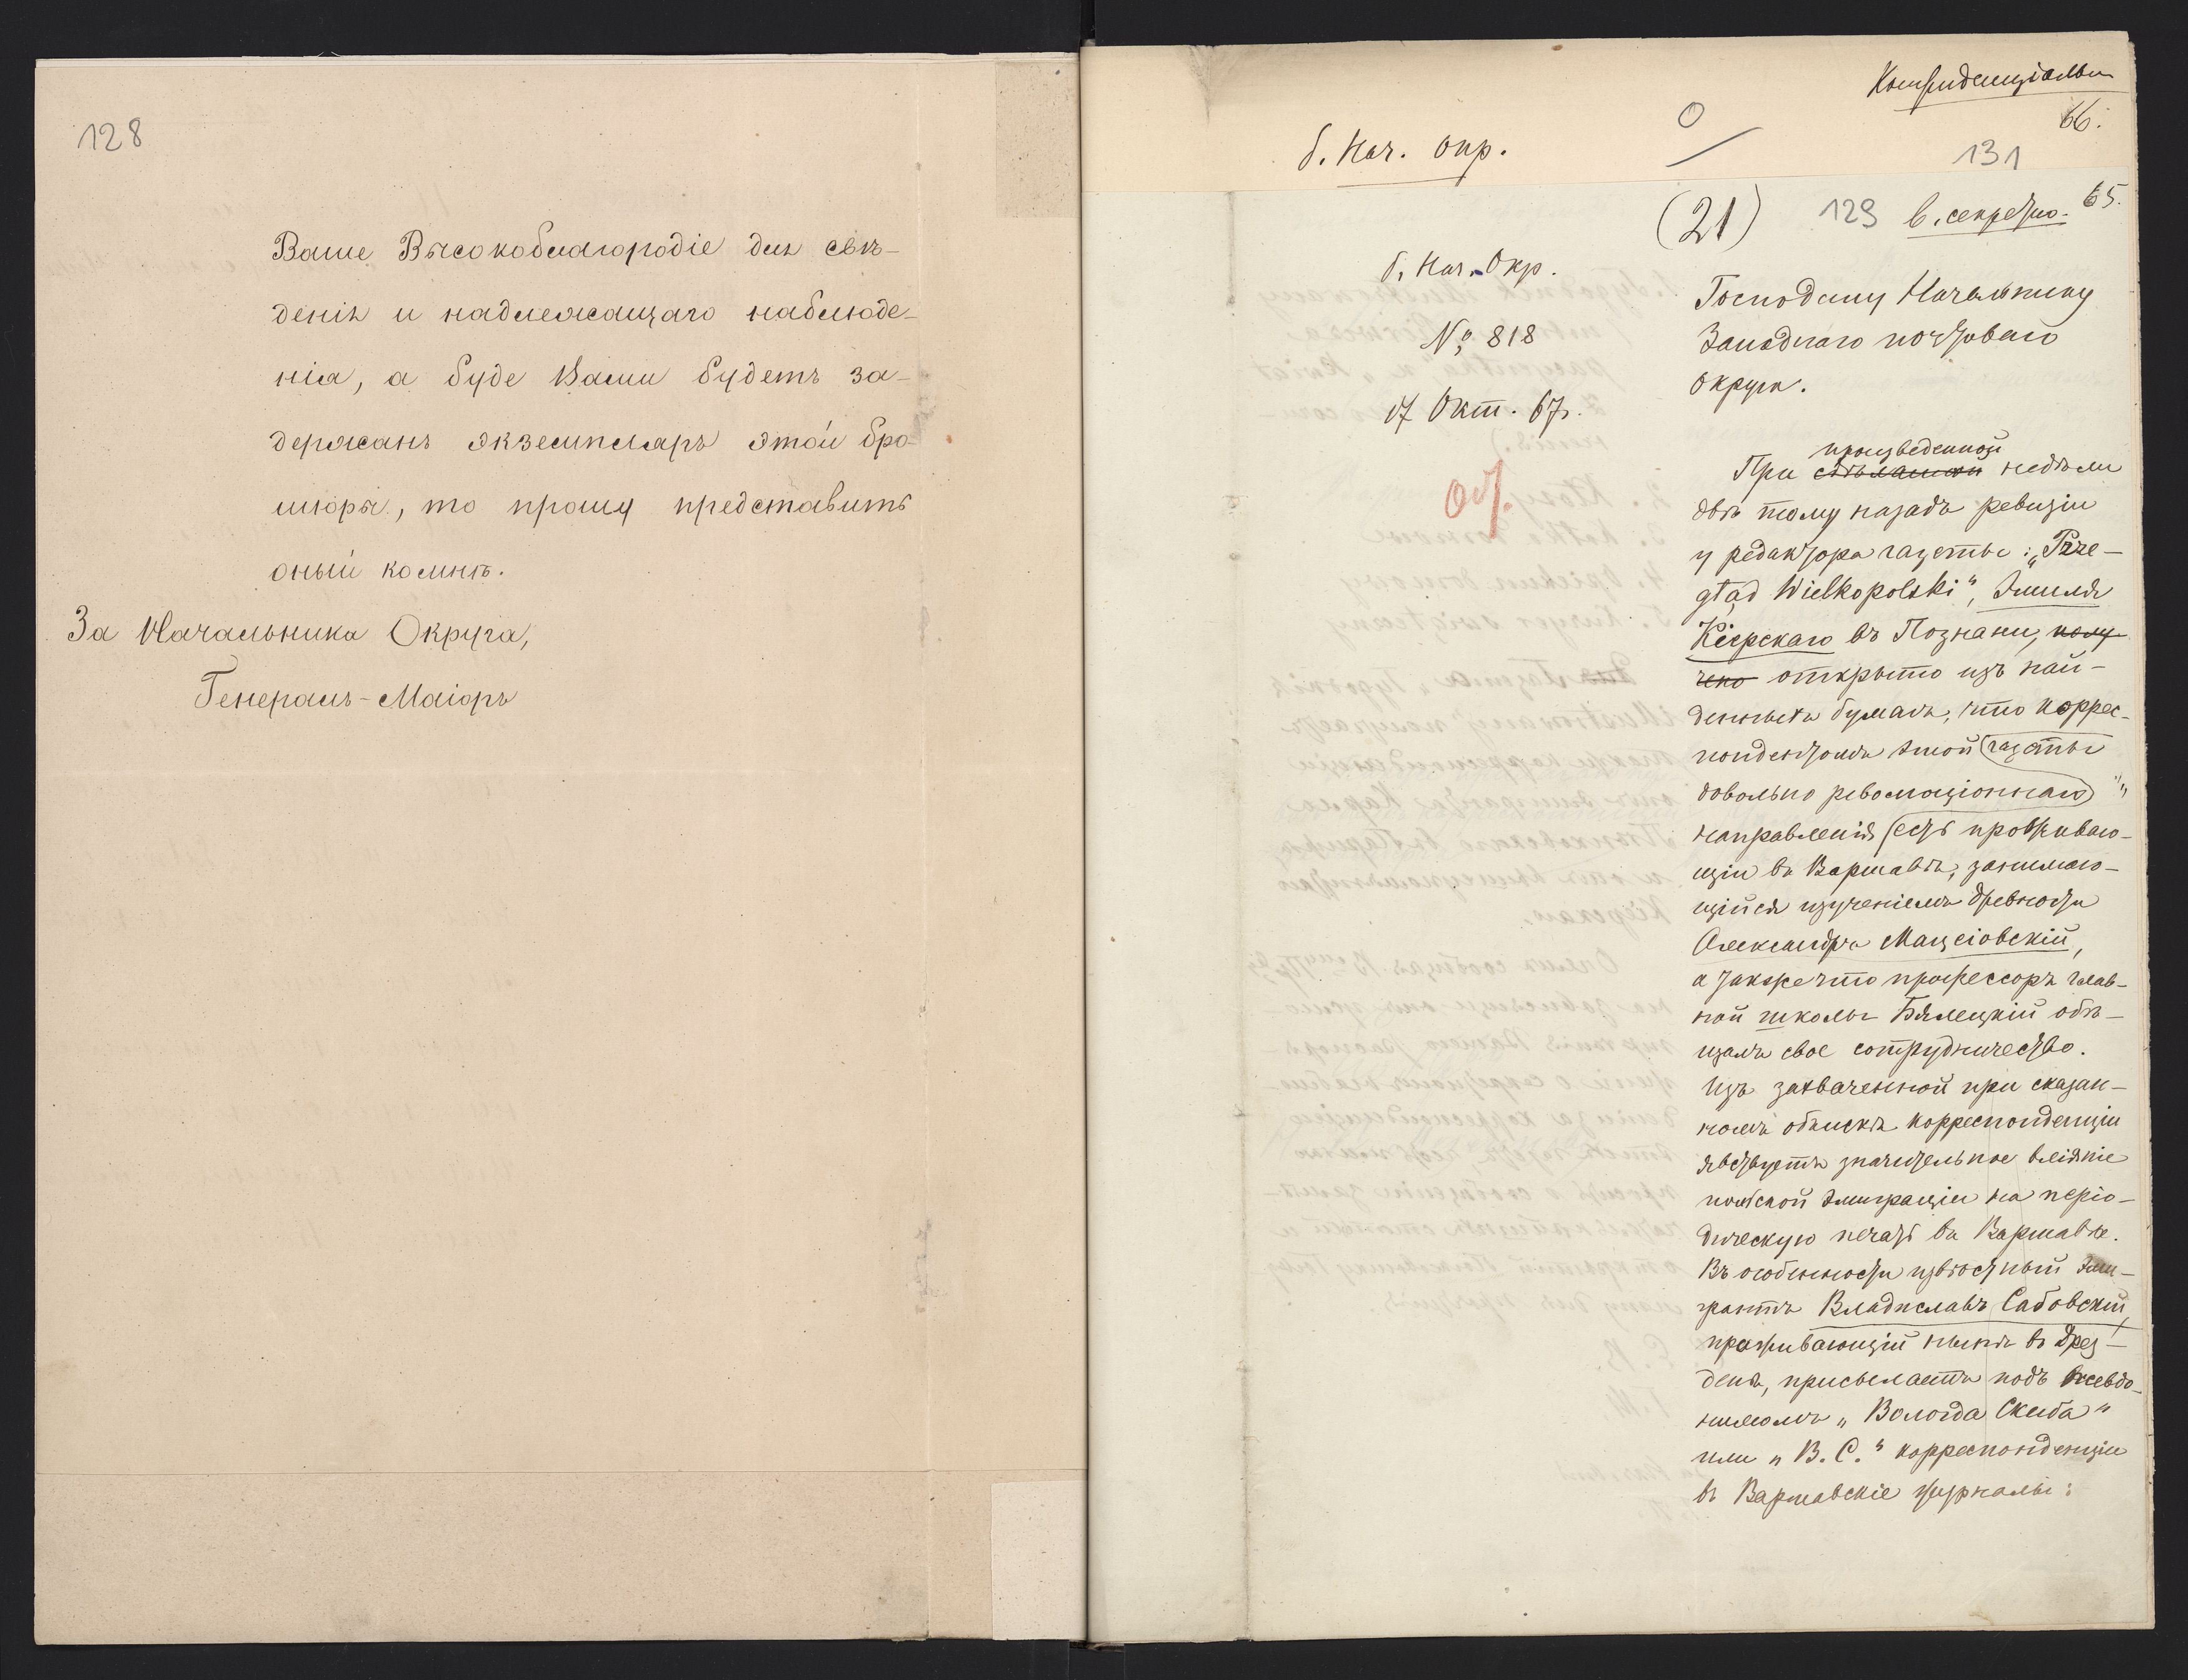 128
Ваше Высокоблагородіе для свѣ-
денія и надлежащаго наблюде-
нія, а буде Вами будетъ за-
держанъ экземпляръ этой бро-
шюры, то прошу представить
оный комнѣ.
За Начальника Округа,
Генералъ-Маіоръ
Конфиденціально
66.
б. Нач. Окр.
131
(21) 129 в. секретно. 65.
б. Нач. Окр.
№ 818
17 Окт. 67 г.
Господину Начальнику
Западнаго почтоваго
округа.
произведенной
При сдѣланной недѣли
двѣ тому назадъ ревизіи
у редактора газеты: „Prze-
gląd Wielkopolski“, Эмиля
Кѣрскаго въ Познани, полу-
чено открыто изъ най-
денныхъ бумагъ, что коррес-
пондентомъ этой газеты
довольно революціоннаго
направленія есть проживаю-
щій въ Варшавѣ, занимаю-
щійся изученіемъ древности
Александръ Мацѣіовскій,
а также что профессоръ глав-
ной школы Бялецкій обѣ-
щалъ свое сотрудничество.
Изъ захваченной при сказан-
номъ обыскѣ корреспонденціи
явствуетъ значительное вліяніе
польской эмиграціи на періо-
дическую печать въ Варшавѣ.
Въ особенности извѣстный эми-
грантъ Владиславъ Сабовскій,
проживающій нынѣ въ Дрез-
денѣ, присылаетъ подъ псевдо-
нимомъ „Вологда Скиба“
или „В. С.“ корреспонденціи
въ Варшавскіе журналы: